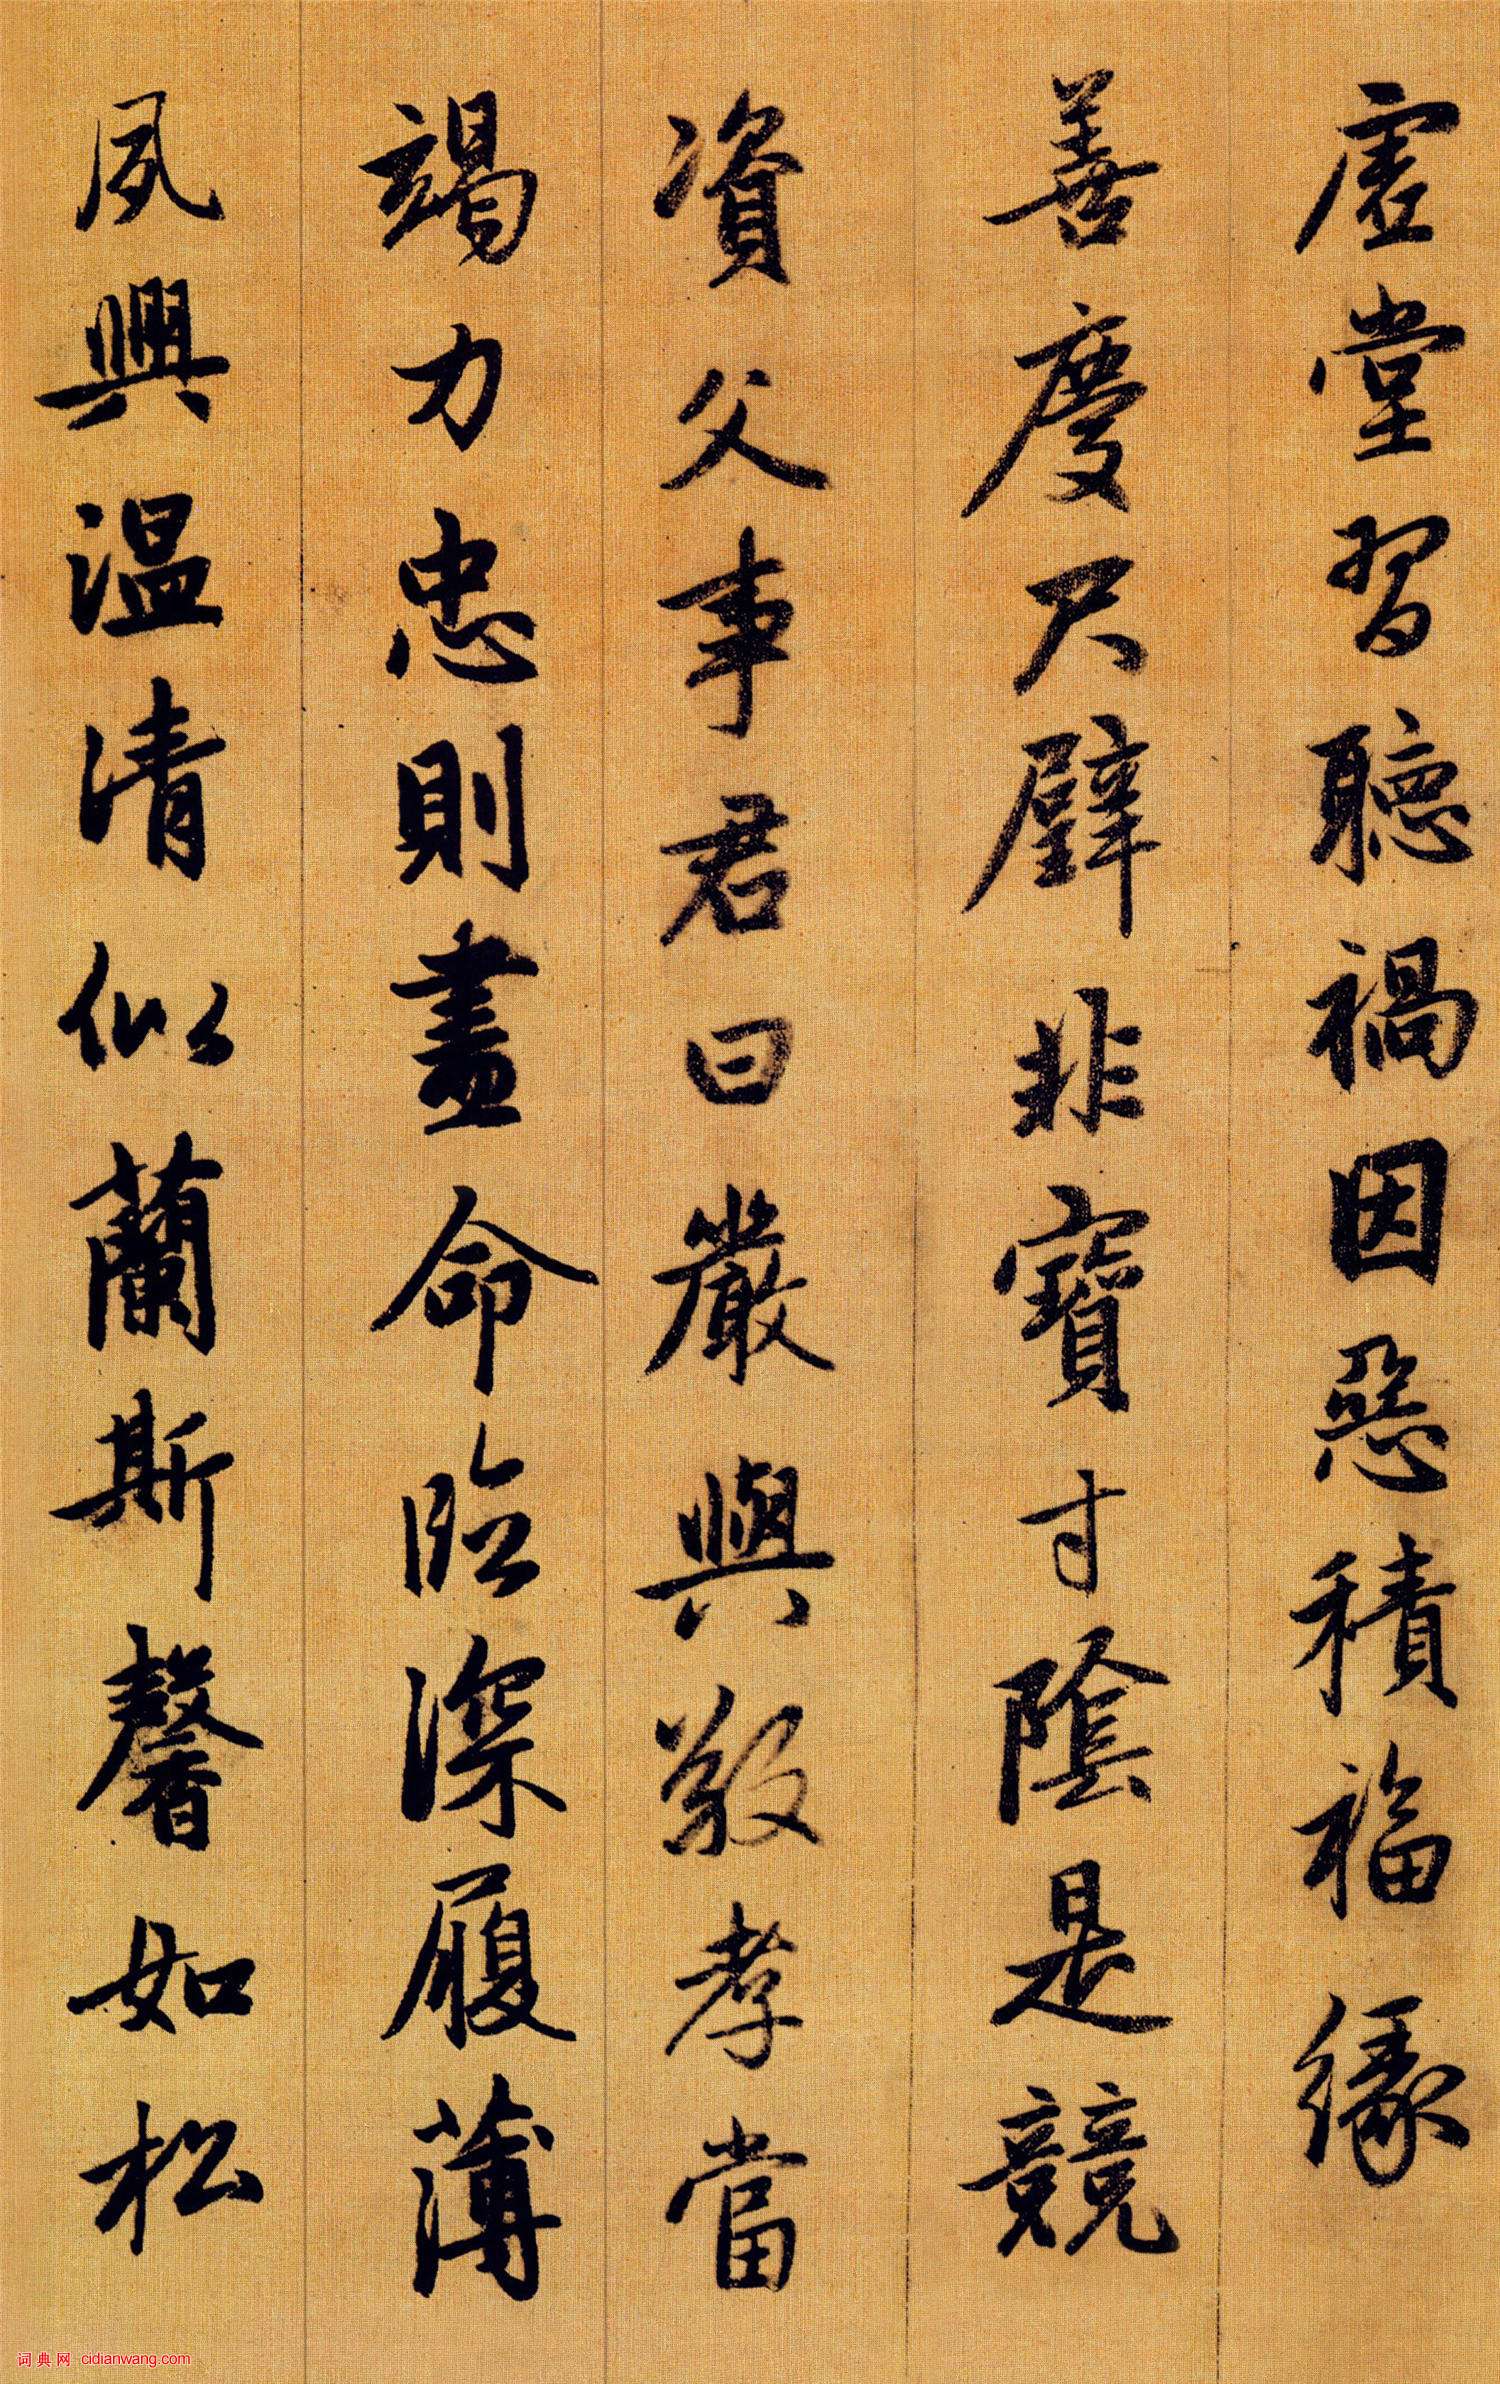 虛堂習聽禍因惡積福緣
善慶尺璧非寶寸陰是競
資父事君曰嚴與敬孝當
竭力忠則盡命臨深履薄
夙興溫清似蘭斯馨如松
词典网 cidianwang.com